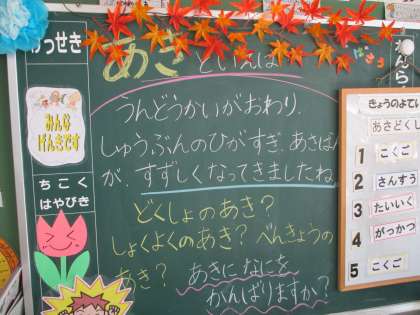 けっせき
みんな
げんきです
ちこく
はやびき
あき といえば
うんどうかいがおわり、
しゅうぶんのひがすぎ、あさばん
が、すずしくなってきましたね
どくしょのあき？
しょくよくのあき？べんきょうの
あき？ あきになにを
がんばりますか？
きょうのよてい
あさどくし
1 こくご
2 さんすう
3 たいいく
4 がっかつ
5 こくご